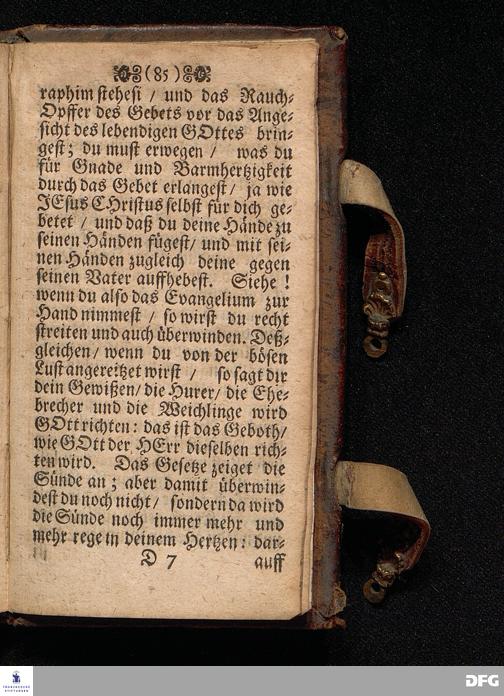 (85)
raphim stehest / und das Rauch-
Opffer des Gebets vor das Ange-
sicht des lebendigen GOttes brin-
gest; du must erwegen / was du
für Gnade und Barmhertzigkeit
durch das Gebet erlangest / ja wie
JEsus CHristus selbst für dich ge-
betet / und daß du deine Hände zu
seinen Händen fügest / und mit sei-
nen Händen zugleich deine gegen
seinen Vater auffhebest. Siehe !
wenn du also das Evangelium zur
Hand nimmest / so wirst du recht
streiten und auch überwinden. Deß-
gleichen / wenn du von der bösen
Lust angereitzet wirst / so sagt dir
dein Gewißen / die Hurer / die Ehe-
brecher und die Weichlinge wird
GOtt richten : das ist das Geboth /
wie GOtt der HErr dieselben rich-
ten wird. Das Gesetze zeiget die
Sünde an ; aber damit überwin-
dest du noch nicht / sondern da wird
die Sünde noch immer mehr und
mehr rege in deinem Hertzen : dar-
D 7 auff
FRANCKESCHE
STIFTUNGEN
DFG